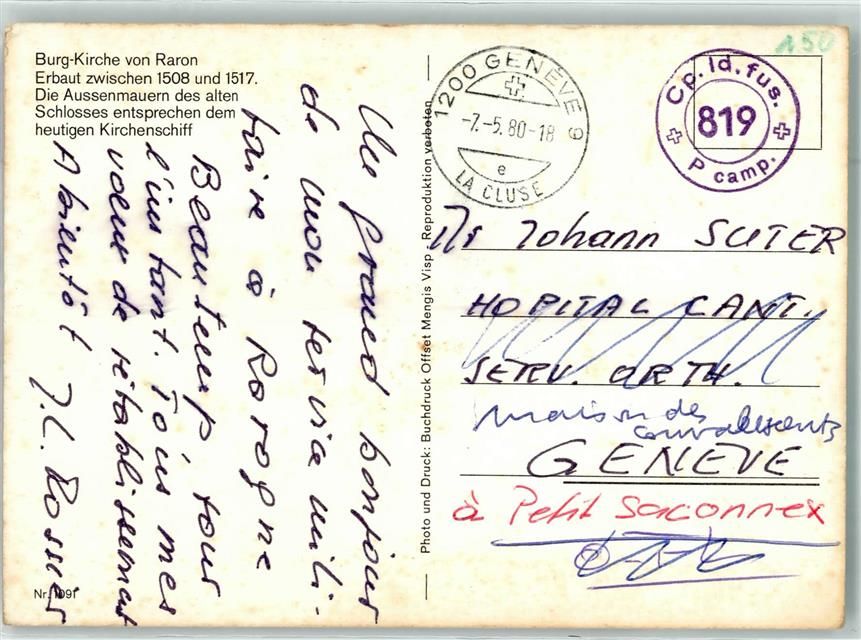 Burg-Kirche von Raron
Erbaut zwischen 1508 und 1517.
Die Aussenmauern des alten
Schlosses entsprechen dem
heutigen Kirchenschiff
Un grand bonjour
de mon service mili-
taire à Rarogne
Beau temp pour
l'instant. Tous mes
voeux de rétablissement
A bientôt J.C. Rossier
Nr. 1091
Photo und Druck: Buchdruck Offset Mengis Visp - Reproduktion verboten
1200 GENÈVE 9
-7.-5.80-18
e
LA CLUSE
Cp. ld. fus.
819
P camp.
150
Mr Johann SUTER
HOPITAL CANT.
SERV. ORTH.
Maison des
convalescents
GENÈVE
à Petit Saconnex